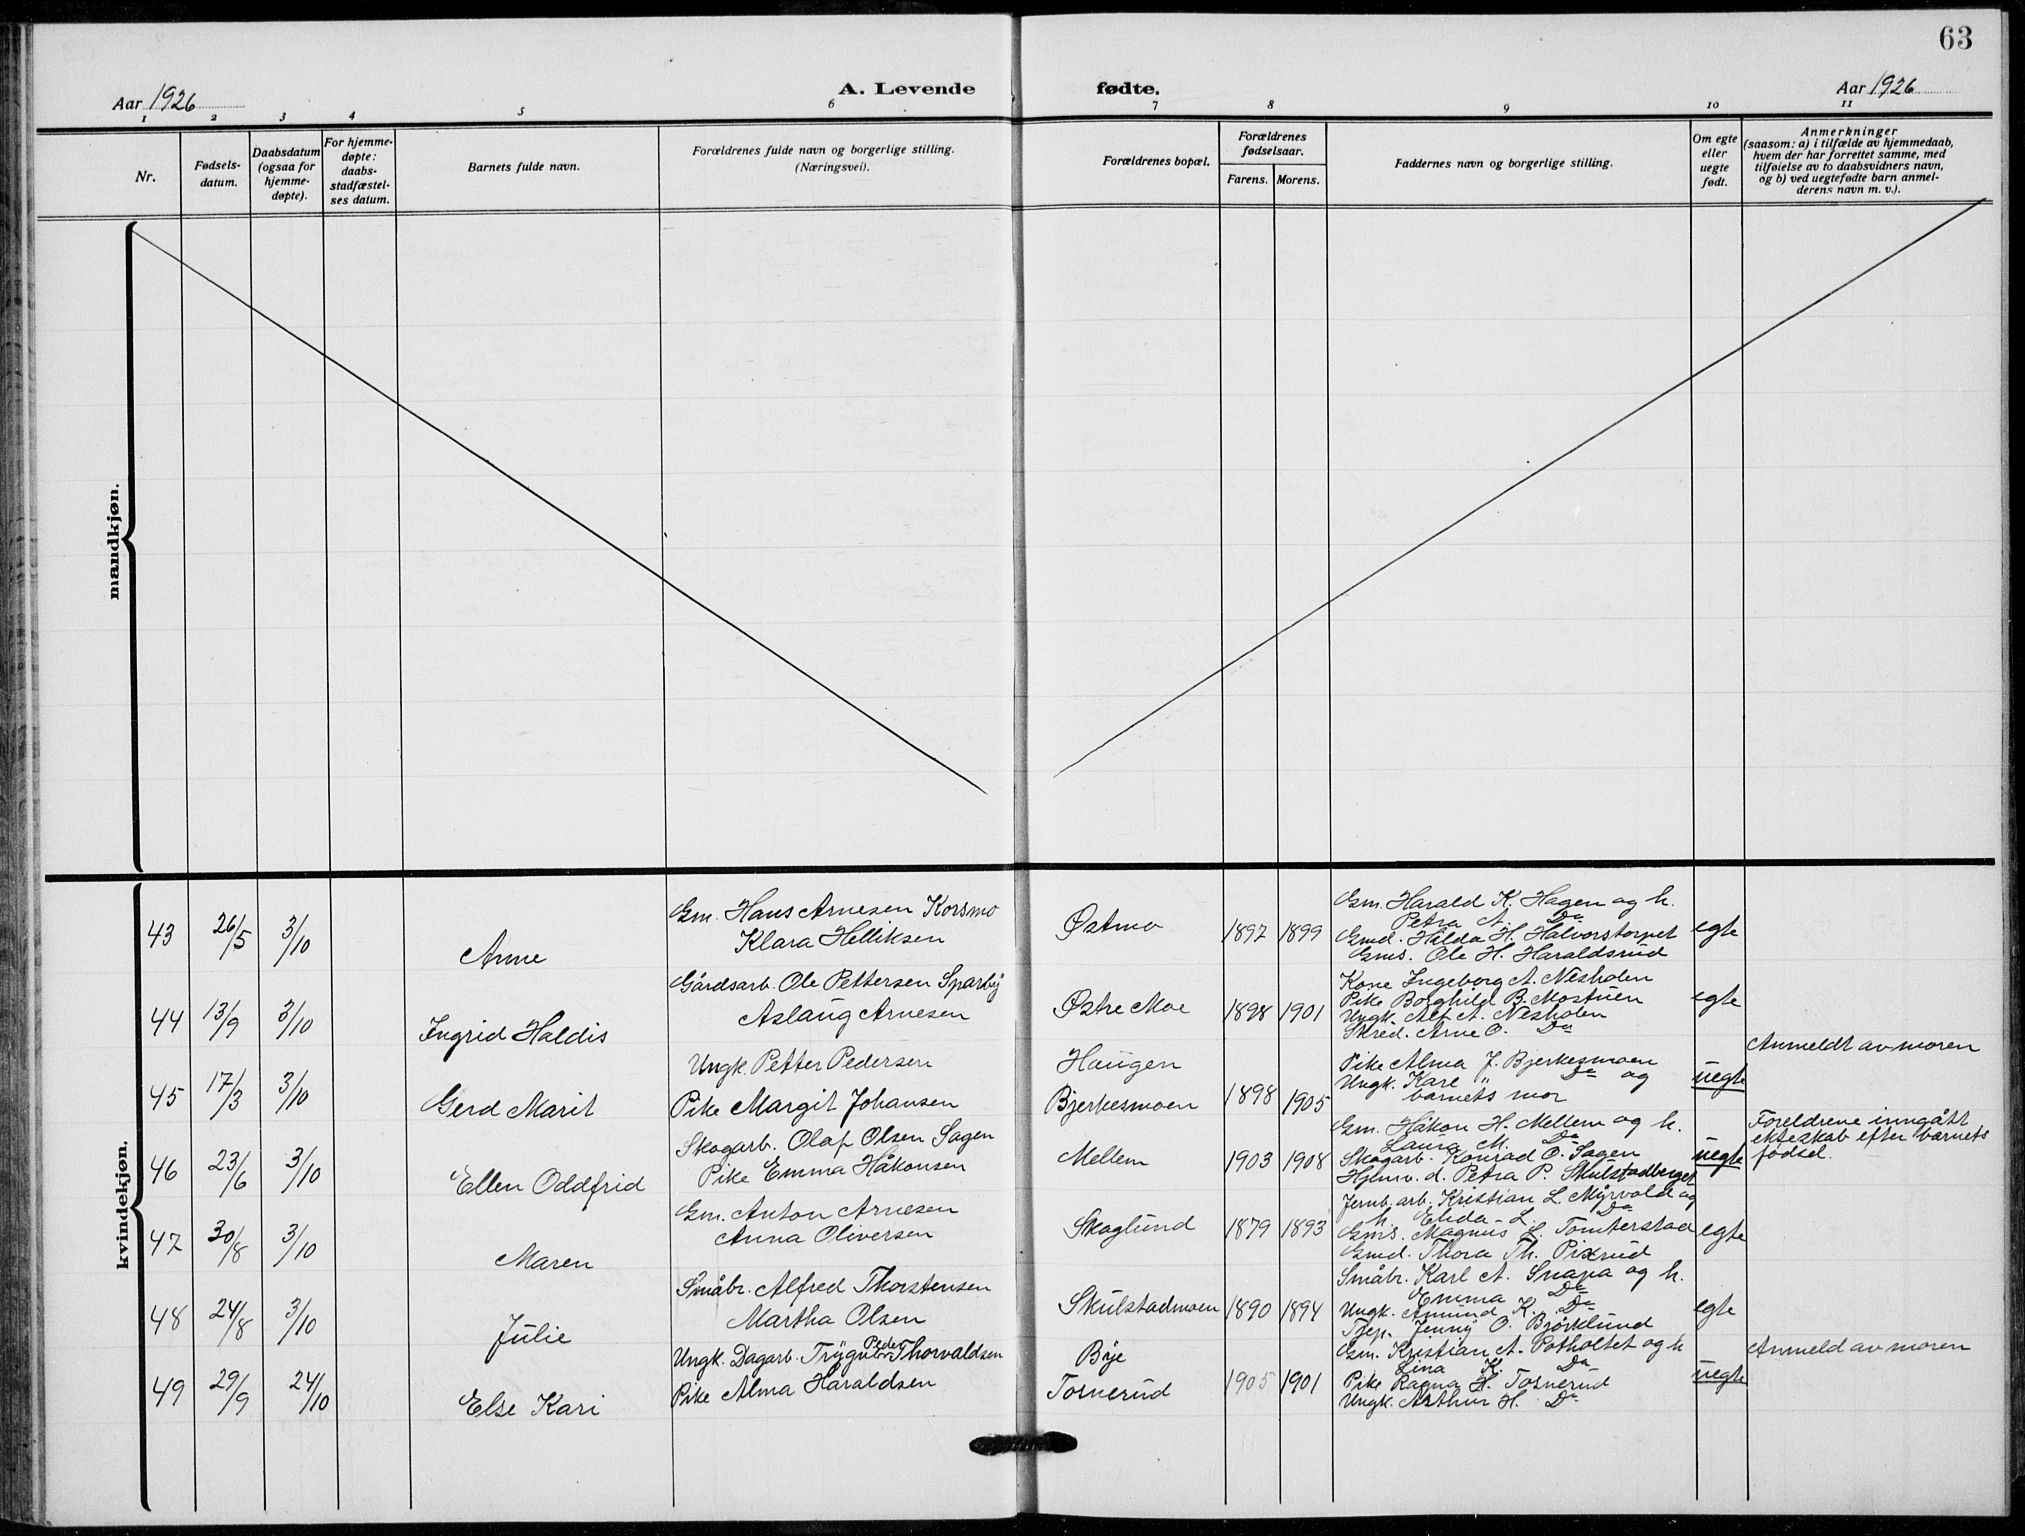 63
Aar 1926
A. Levende
fødte.
Aar 1926
1 2 3 4 5 6 7 8 9 10 11
Nr.
Fødsels-
datum.
Daabsdatum
(ogsaa for
hjemme-
døpte).
For hjemme-
døpte:
daabs-
stadfæstel-
ses datum.
Barnets fulde navn.
Forældrenes fulde navn og borgerlige stilling.
(Næringsvei).
Forældrenes bopæl.
Forældrenes
fødselsaar.
Farens. Morens.
Faddernes navn og borgerlige stilling.
Om egte
eller
uegte
født.
Anmerkninger
(saasom: a) i tilfælde av hjemmedaab,
hvem der har forrettet samme, med
tilføielse av to daabsvidners navn,
og b) ved uegtefødte barn anmel-
derens navn m. v.).
mandkjøn.
kvindekjøn.
43 26/5 3/10
Anne
Gm. Hans Arnesen Korsmo
Klara Helliksen
Østmo
1897 1899
Gm. Harald K. Hagen og h.
Petra A. Do
Gmd. Hilda H. Halvorstorpet
Gms. Ole H. Haraldsrud
egte
44 13/9 3/10
Ingrid Haldis
Gårdsarb. Ole Pettersen Sparby
Aslaug Arnesen
Østre Moe
1898 1901
Kone Ingeborg A. Nesholen
Pike Borghild B. Mostuen
Ungk. Alf A. Nesholen
Skred. Arne O. Do
egte
45 17/3 3/10
Gerd Marit
Ungk. Petter Pedersen
Pike Margit Johansen
Haugen
Bjerkesmoen
1898 1905
Pike Alma J. Bjerkesmoen
Ungk. Kare " Do og
barnets mor
uegte
Anmeldt av moren
46 23/6 3/10
Ellen Oddfrid
Skogarb. Olaf Olsen Sagen
Pike Emma Håkonsen
Mellem
1903 1908
Gm. Håkon H. Mellem og h.
Laura M. Do
Skogarb. Konrad O. Sagen
Hjlmv. d. Petra P. Skulstadberget
uegte
Foreldrene inngått
ekteskab efter barnets
fødsel.
47 30/8 3/10
Maren
Gm. Anton Arnesen
Anna Oliversen
Skoglund
1879 1893
Jernb. arb. Kristian L. Myrvold og
h. Elida L. Do
Gms. Magnus L. Tomterstad
Gmd. Thora Th. Pixrud
egte
48 24/8 3/10
Julie
Småbr. Alfred Thorstensen
Martha Olsen
Skulstadmoen
1890 1894
Småbr. Karl A. Snapa og h.
Emma Do
Ungk. Amund K. Do
Tjep. Jenny O. Bjørklund
egte
49 29/9 24/10
Else Kari
Ungk. Dagarb. Trygve Peder Thorvaldsen
Pike Alma Haraldsen
Bye
Tosnerud
1905 1901
Gm. Kristian A. Potholtet og h
Lina K. Do
Pike Ragna H. Tosnerud
Ungk. Arthur H. Do
uegte
Anmeld av moren